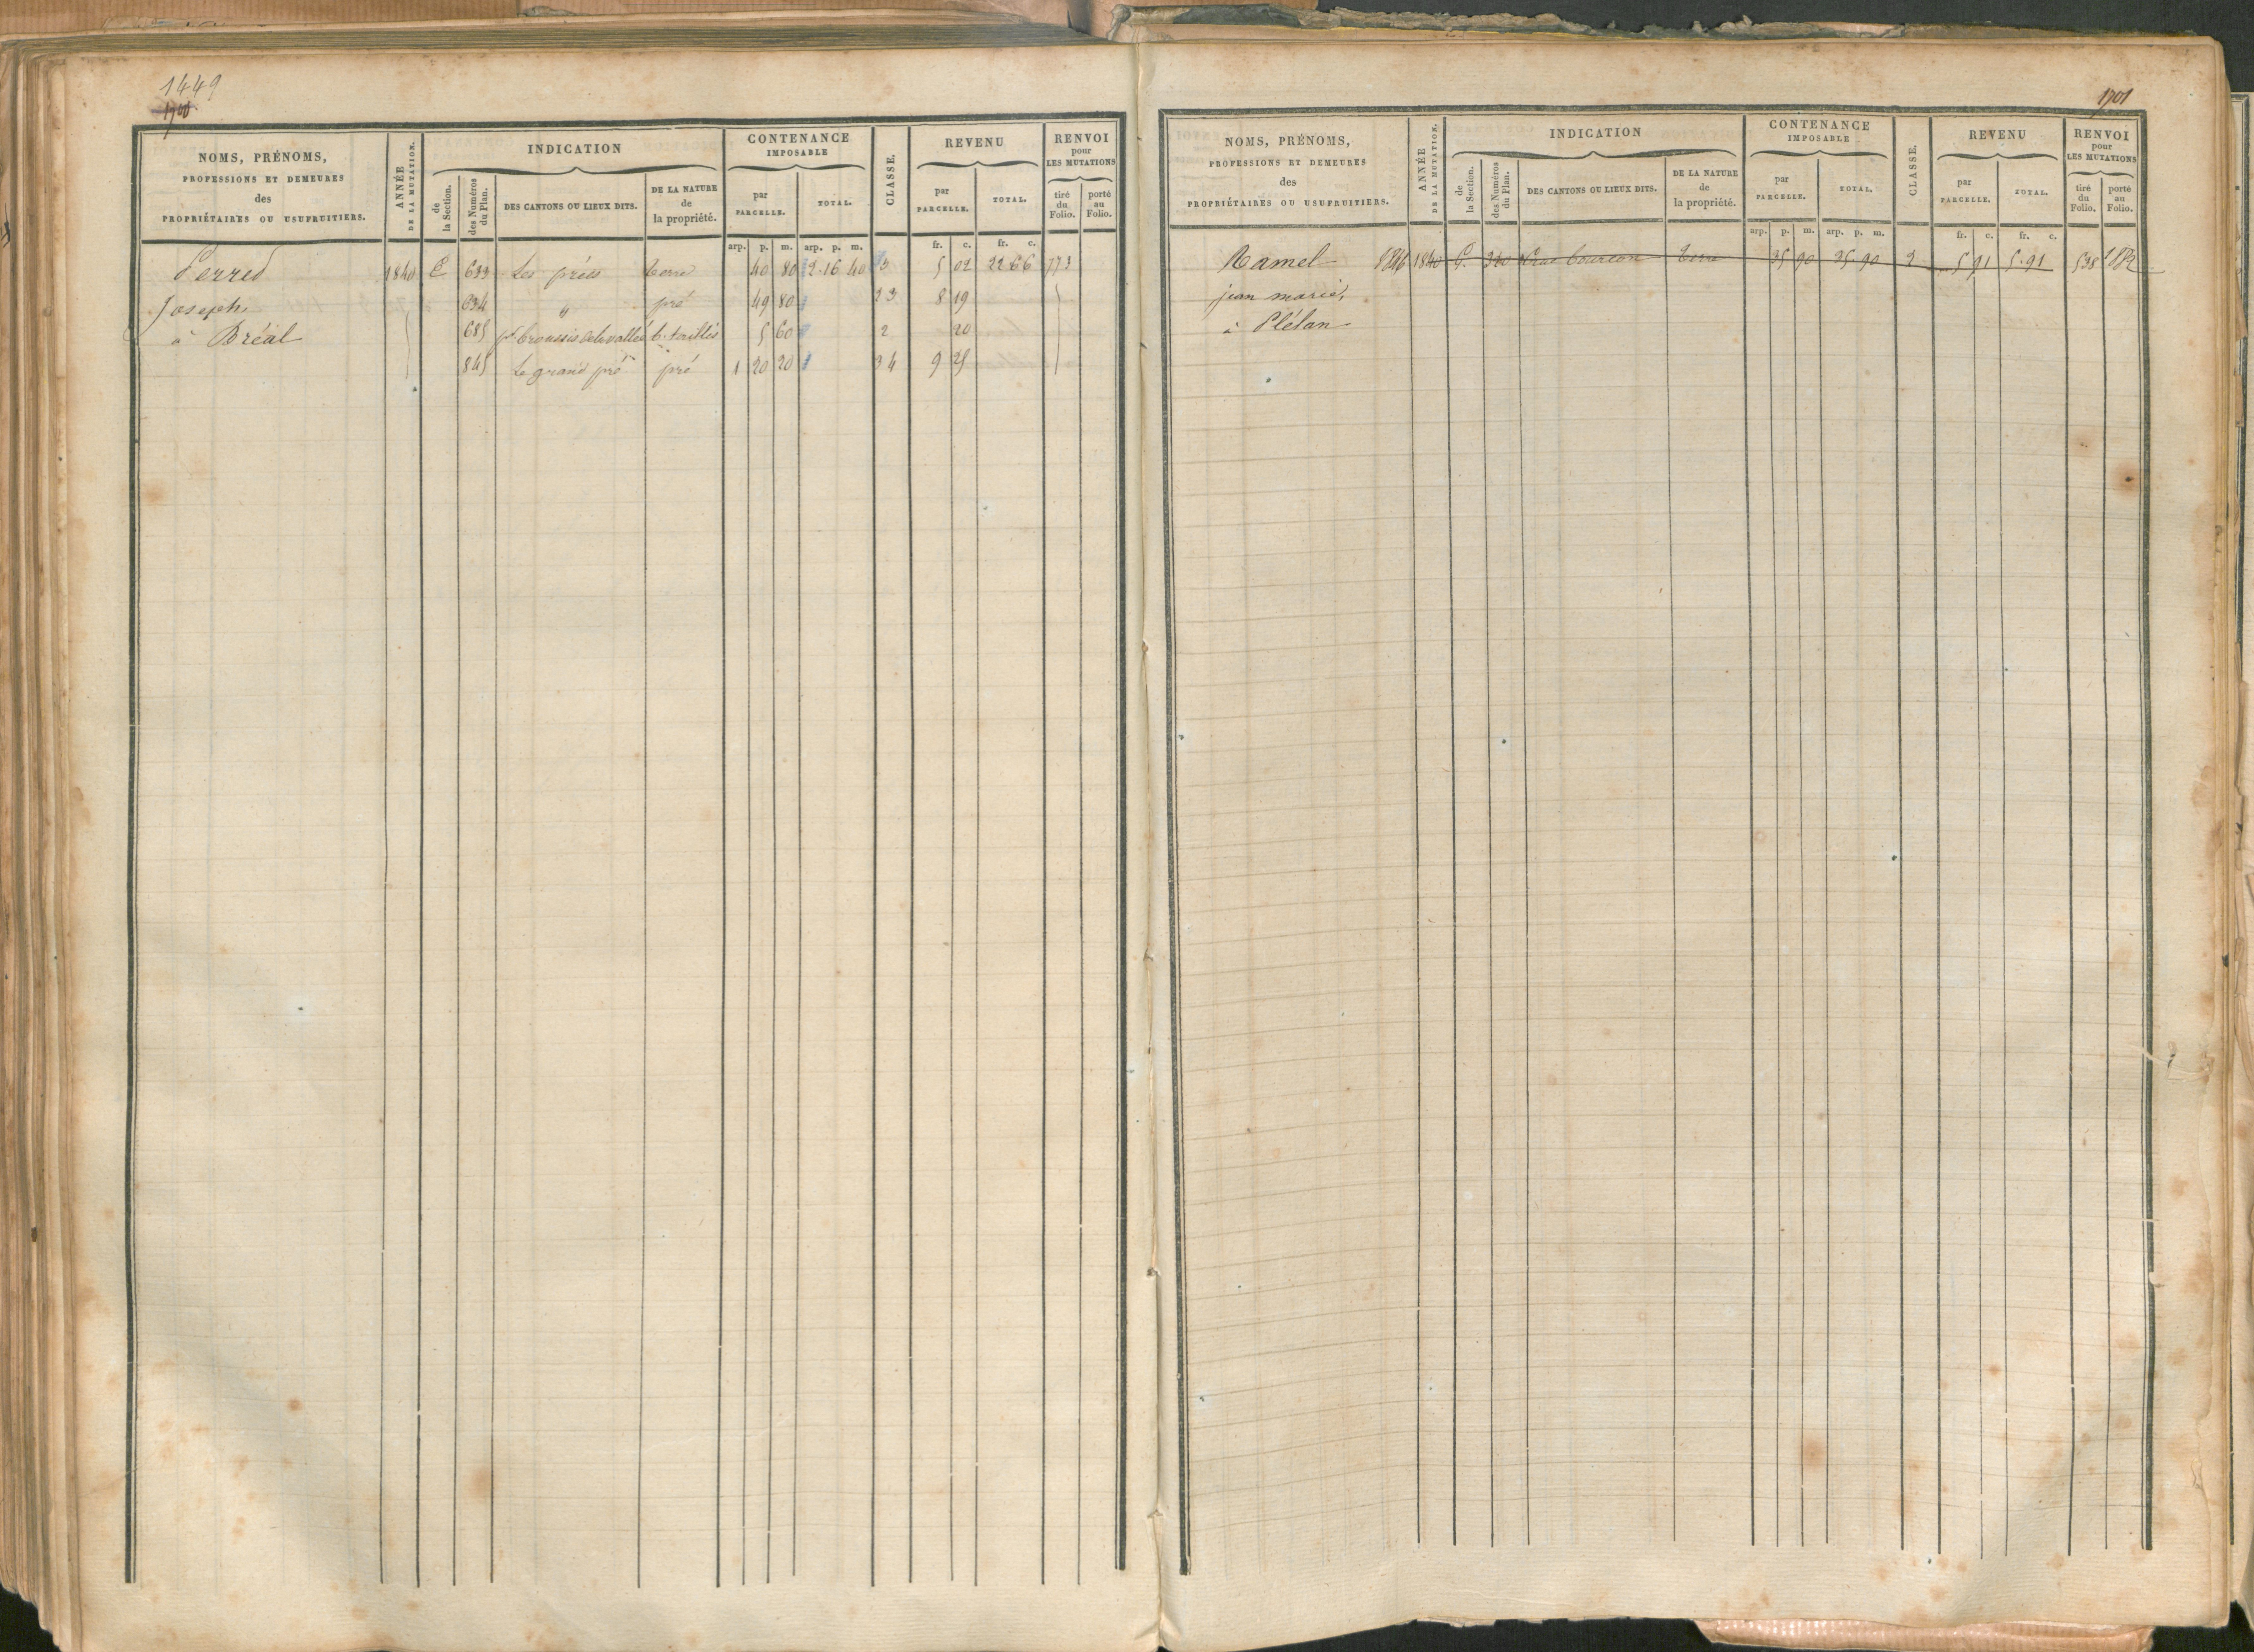 1449
1700
NOMS, PRÉNOMS,
PROFESSIONS ET DEMEURES
des
PROPRIÉTAIRES OU USUFRUITIERS.
ANNÉE
DE LA MUTATION.
INDICATION
de
la Section.
des Numéros
du Plan.
DES CANTONS OU LIEUX DITS.
DE LA NATURE
de
la propriété.
CONTENANCE
IMPOSABLE
par
PARCELLE.
TOTAL.
CLASSE.
REVENU
par
PARCELLE.
TOTAL.
RENVOI
pour
LES MUTATIONS
tiré
du
Folio.
porté
au
Folio.
arp. p. m. arp. p. m. fr. c. fr. c.
Perred 1840 E 633 Les prées terre 40 80 2.16 40 3 5 02 22 66 773
Joseph, 634 " pré 49 80 2 3 8 19
à Bréal 685 pt broussis de la vallée b. taillis 5 60 2 20
845 Le grand pré pré 1 20 20 3 4 9 25
1701
NOMS, PRÉNOMS,
PROFESSIONS ET DEMEURES
des
PROPRIÉTAIRES OU USUFRUITIERS.
ANNÉE
DE LA MUTATION.
INDICATION
de
la Section.
des Numéros
du Plan.
DES CANTONS OU LIEUX DITS.
DE LA NATURE
de
la propriété.
CONTENANCE
IMPOSABLE
par
PARCELLE.
TOTAL.
CLASSE.
REVENU
par
PARCELLE.
TOTAL.
RENVOI
pour
LES MUTATIONS
tiré
du
Folio.
porté
au
Folio.
arp. p. m. arp. p. m. fr. c. fr. c.
Ramel 1846 1840 G. 320 terre 35 90 35 90 3 5 91 5.91 538
jean marie,
à Plélan